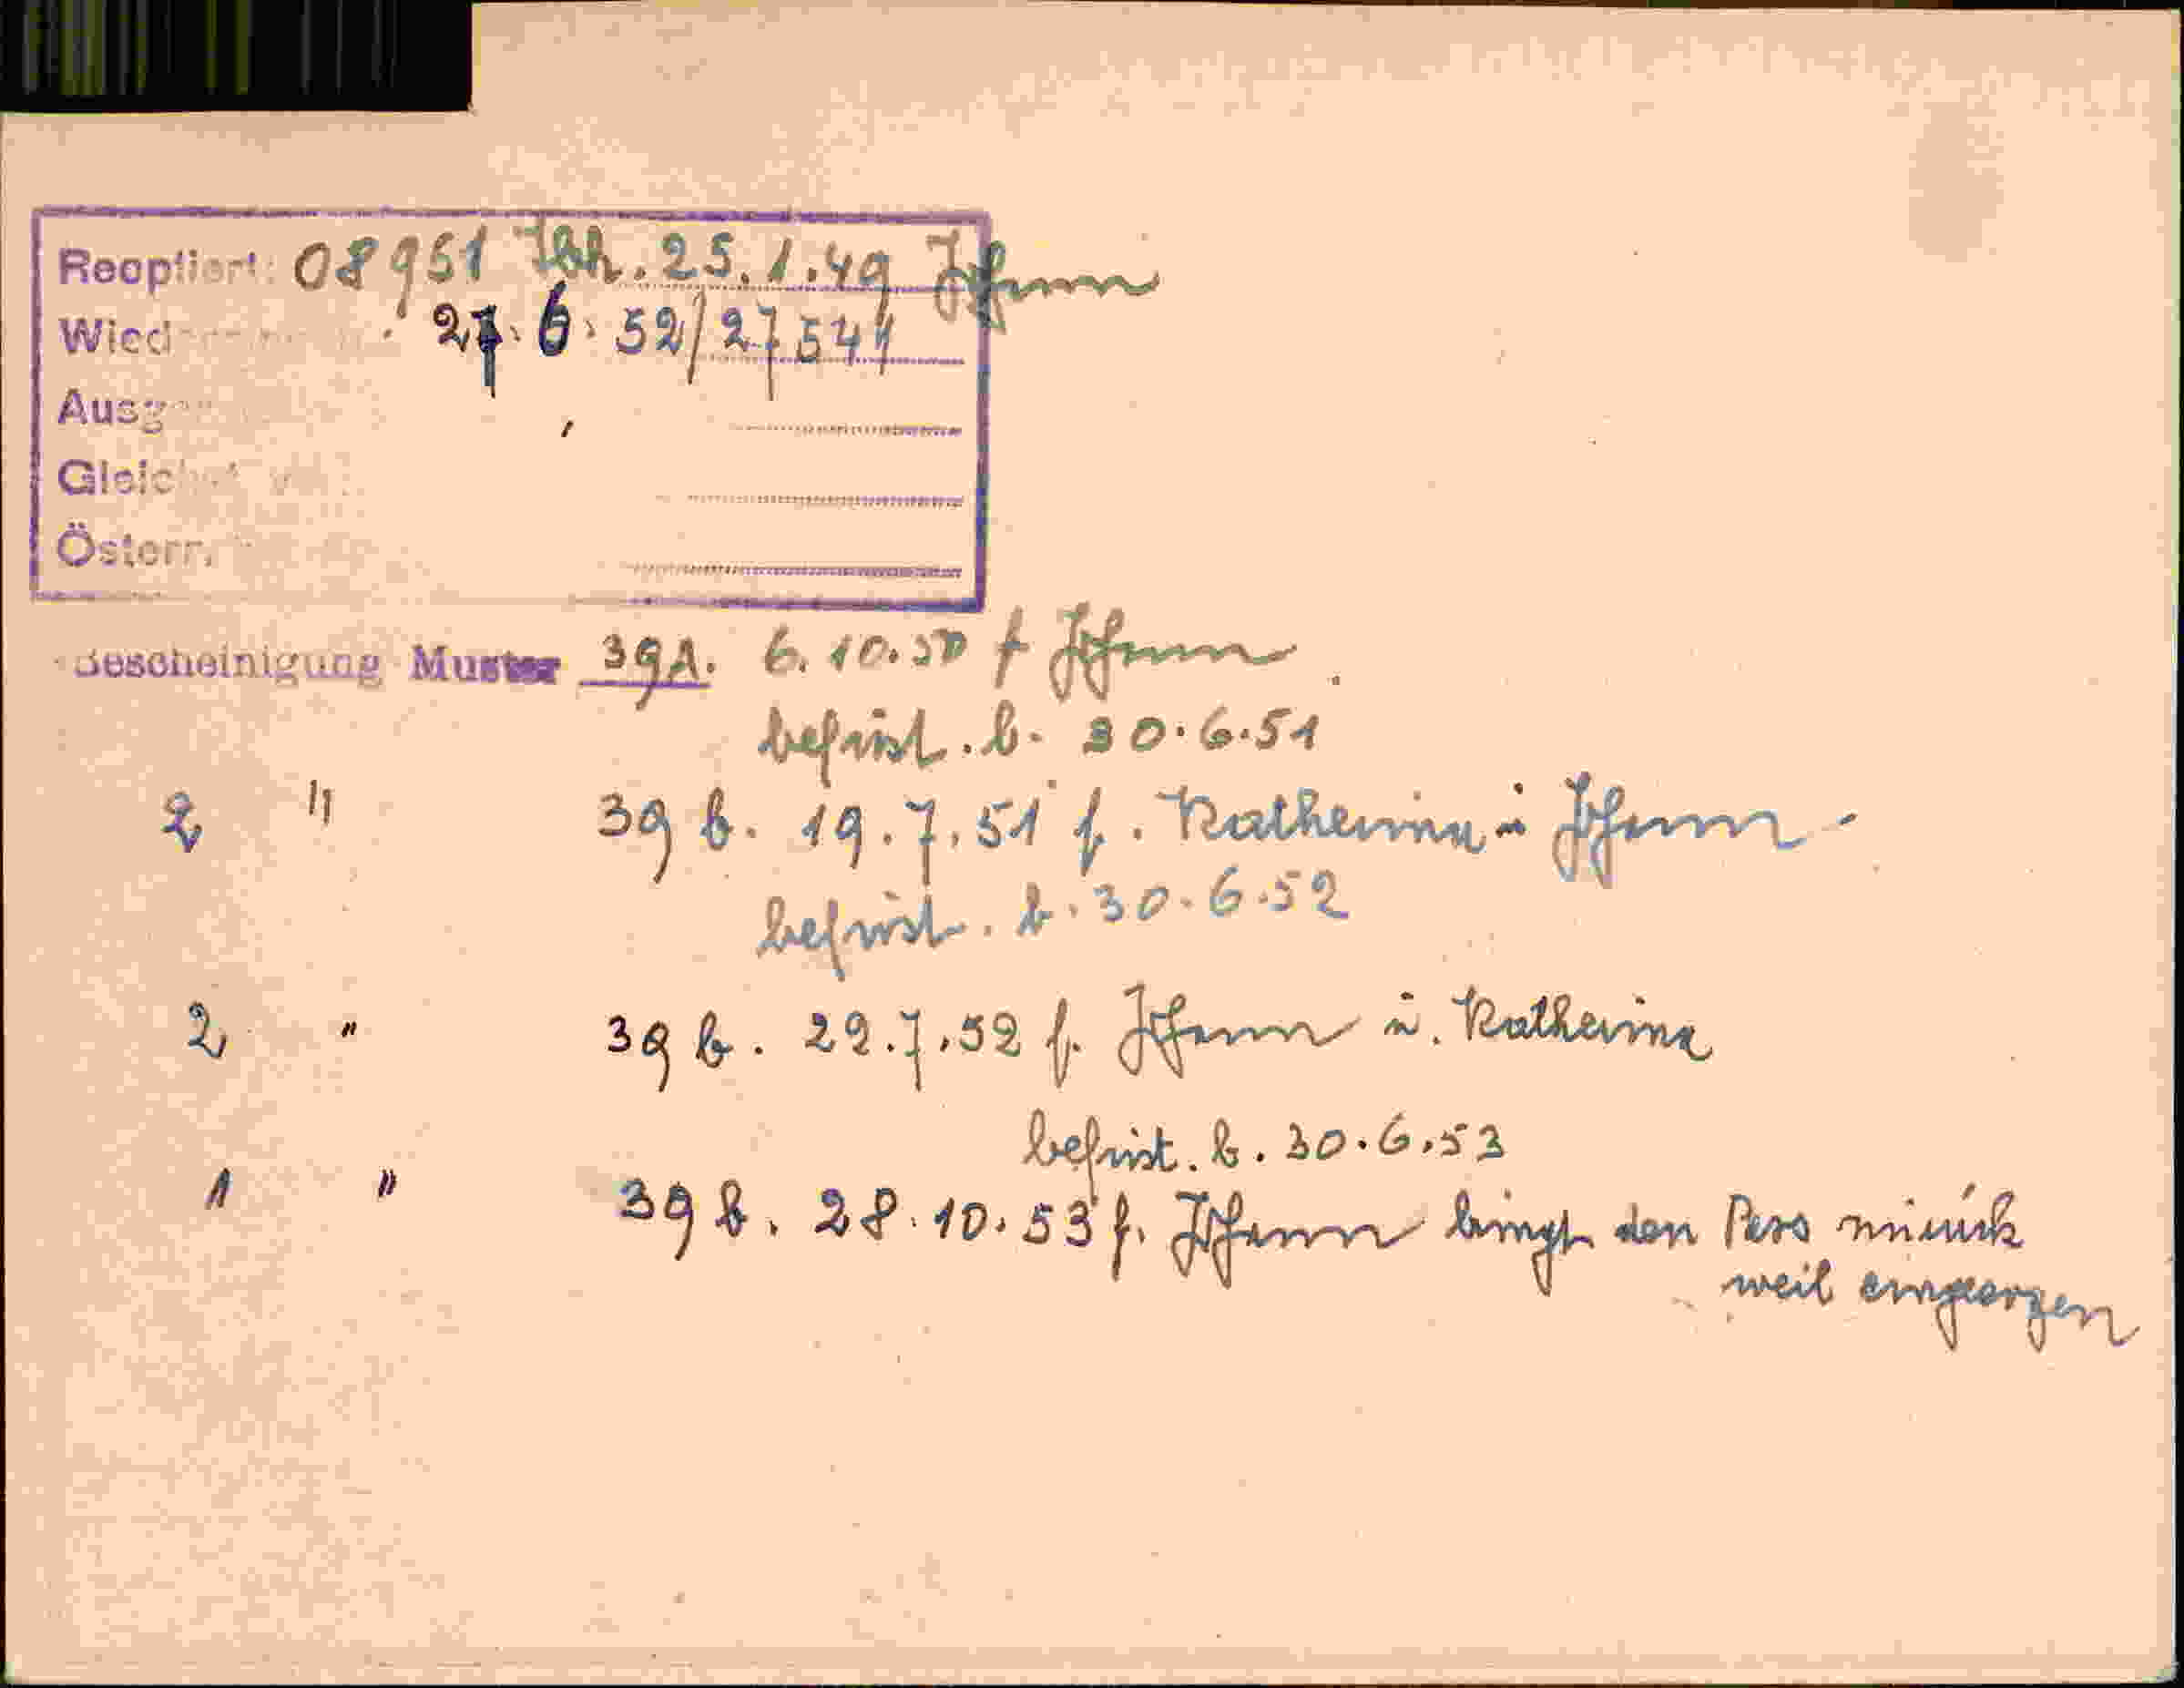 Reoptiert: 08951 25.1.49 Johann
Wied 27.6.52/27541
Ausg
Gleic
Österr.
Bescheinigung Muster 39A. 6.10.50 f Johann
befrist. b. 30.6.51
2 " 39 b. 19.7.51 f. Katherina u Johann
befrist. b. 30.6.52
2 " 39 b. 22.7.52 f. Johann u. Katherina
befrist. b. 30.6.53
1 " 39 b. 28.10.53 f. Johann bringt den Pers zurück
weil eingezogen